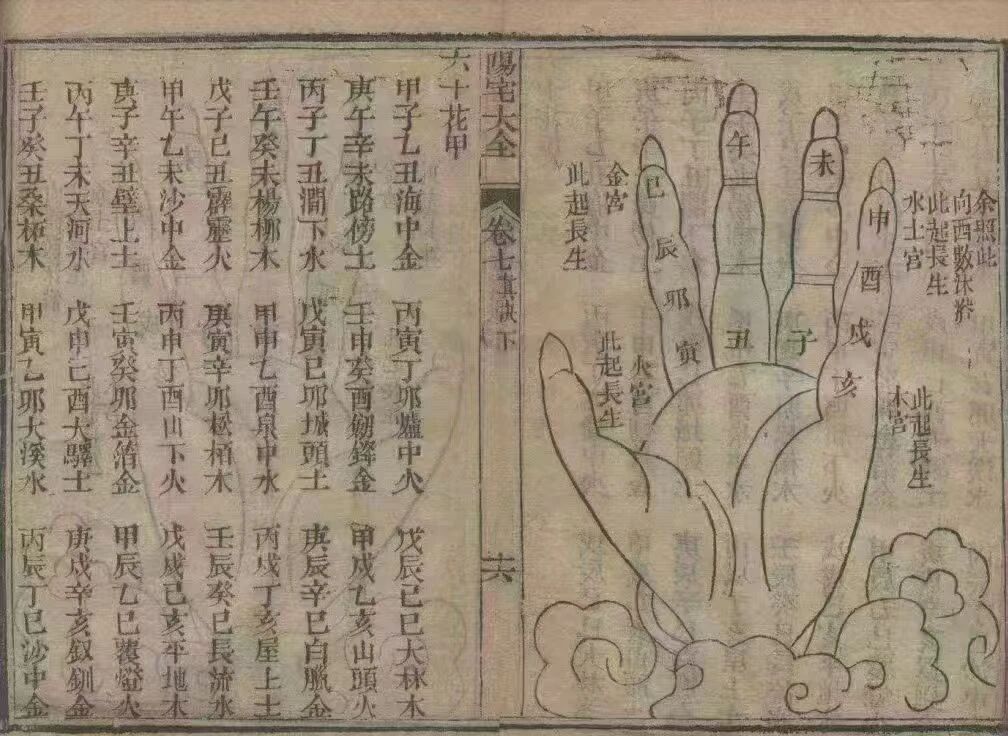 余照此
向西數沐浴
此起長生
水土宮
此起長生
木宮
申
酉
戌
亥
未
子
午
丑
巳
辰
卯
寅
金宮
此起長生
火宮
此起長生
陽宅大全
卷七真訣下
十六
六十花甲
甲子乙丑海中金 丙寅丁卯爐中火 戊辰己巳大林木
庚午辛未路傍土 壬申癸酉劒鋒金 甲戌乙亥山頭火
丙子丁丑澗下水 戊寅己卯城頭土 庚辰辛巳白臘金
壬午癸未楊柳木 甲申乙酉泉中水 丙戌丁亥屋上土
戊子己丑霹靂火 庚寅辛卯松栢木 壬辰癸巳長流水
甲午乙未沙中金 丙申丁酉山下火 戊戌己亥平地木
庚子辛丑壁上土 壬寅癸卯金箔金 甲辰乙巳覆燈火
丙午丁未天河水 戊申己酉大驛土 庚戌辛亥釵釧金
壬子癸丑桑柘木 甲寅乙卯大溪水 丙辰丁巳沙中金